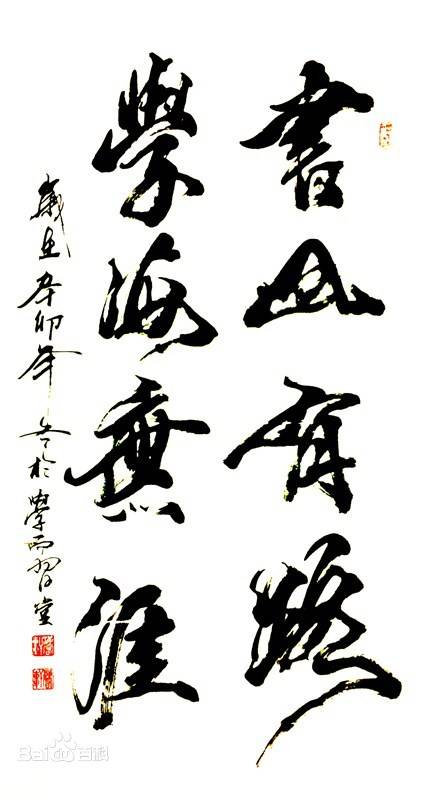 書山有路
學海無涯
歲在辛卯年冬於學而習堂
Baidu百科